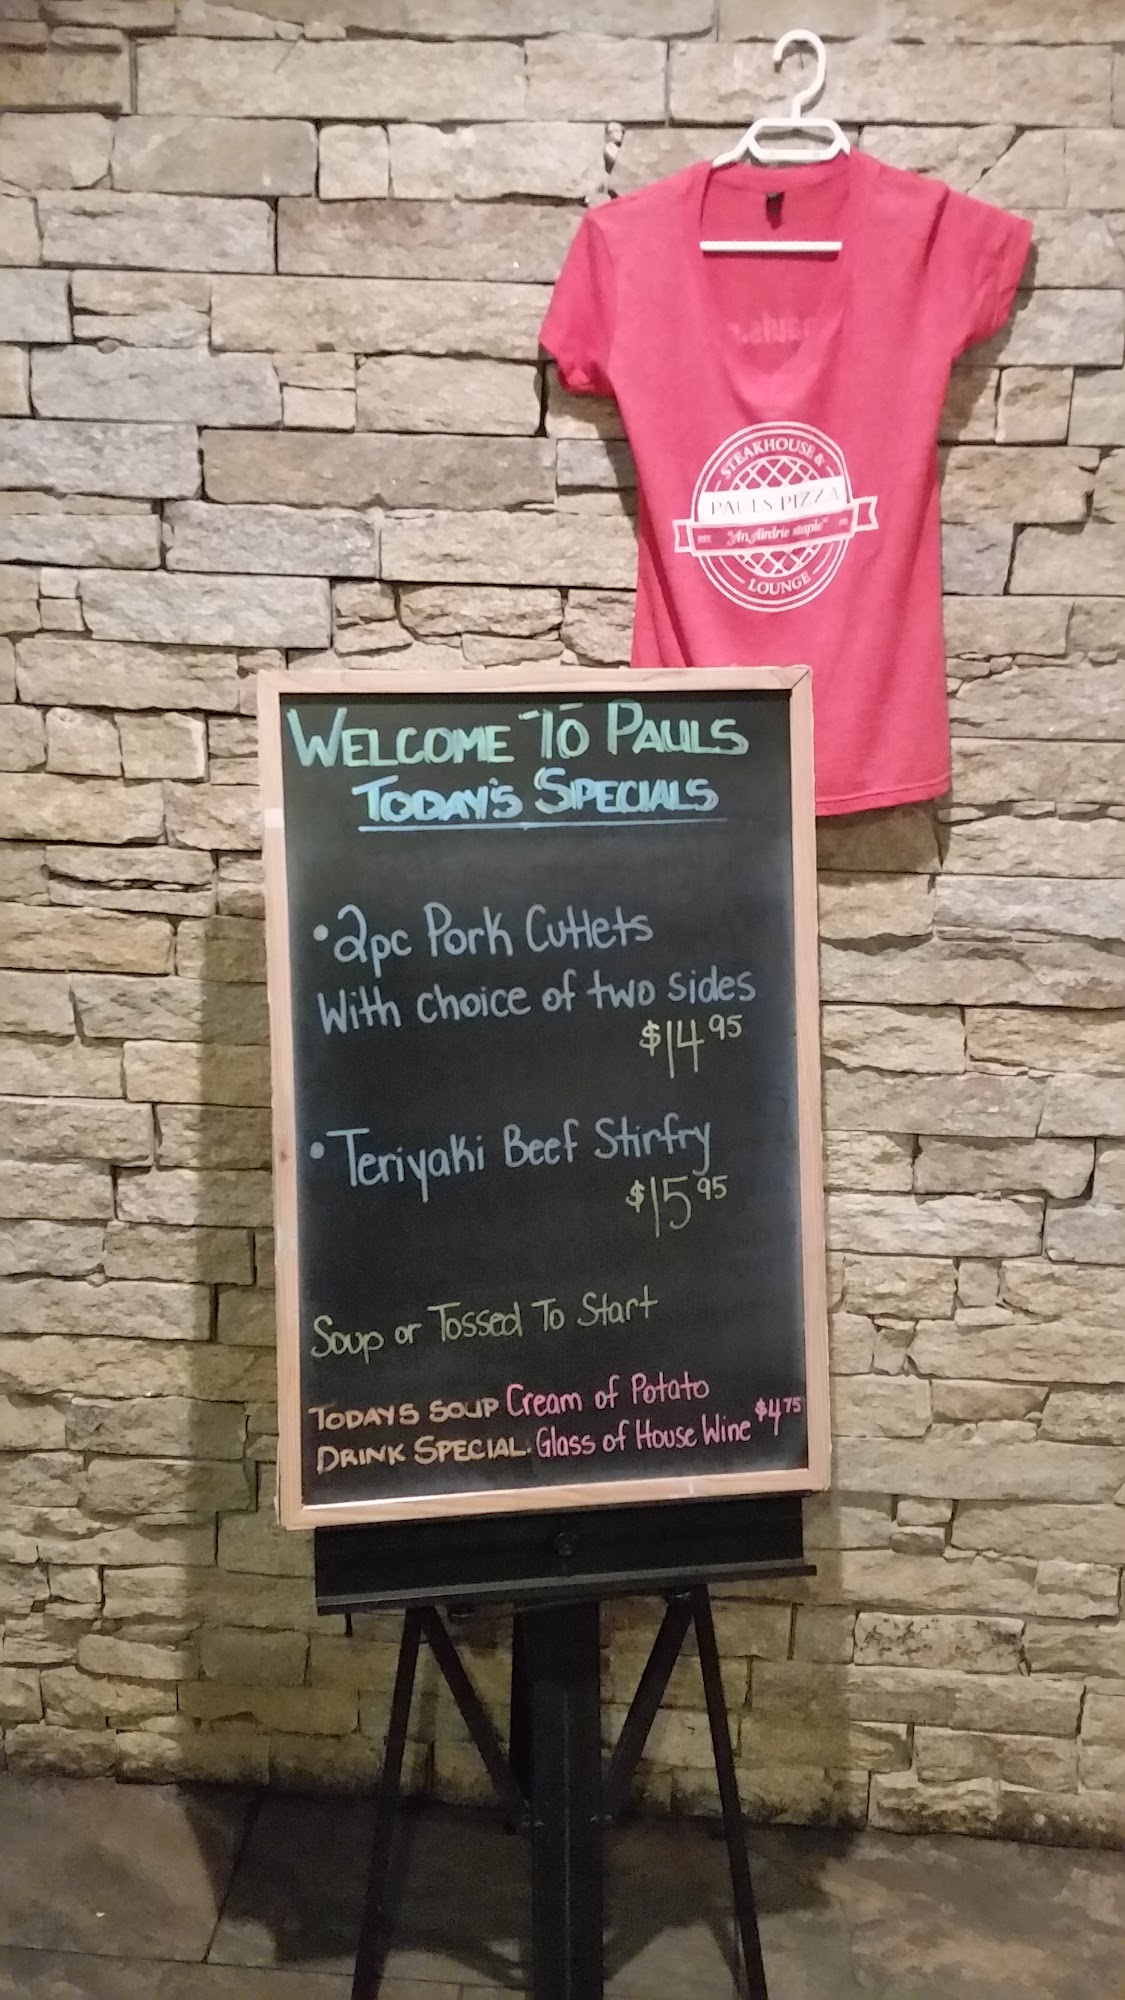 STEAKHOUSE &
PAULS PIZZA
EST "An Airdrie staple"
LOUNGE
WELCOME TO PAULS
TODAY'S SPECIALS
• 2pc Pork Cutlets
With choice of two sides
$14.95
• Teriyaki Beef Stirfry
$15.95
Soup or Tossed To Start
TODAYS SOUP Cream of Potato
DRINK SPECIAL. Glass of House Wine $4.75